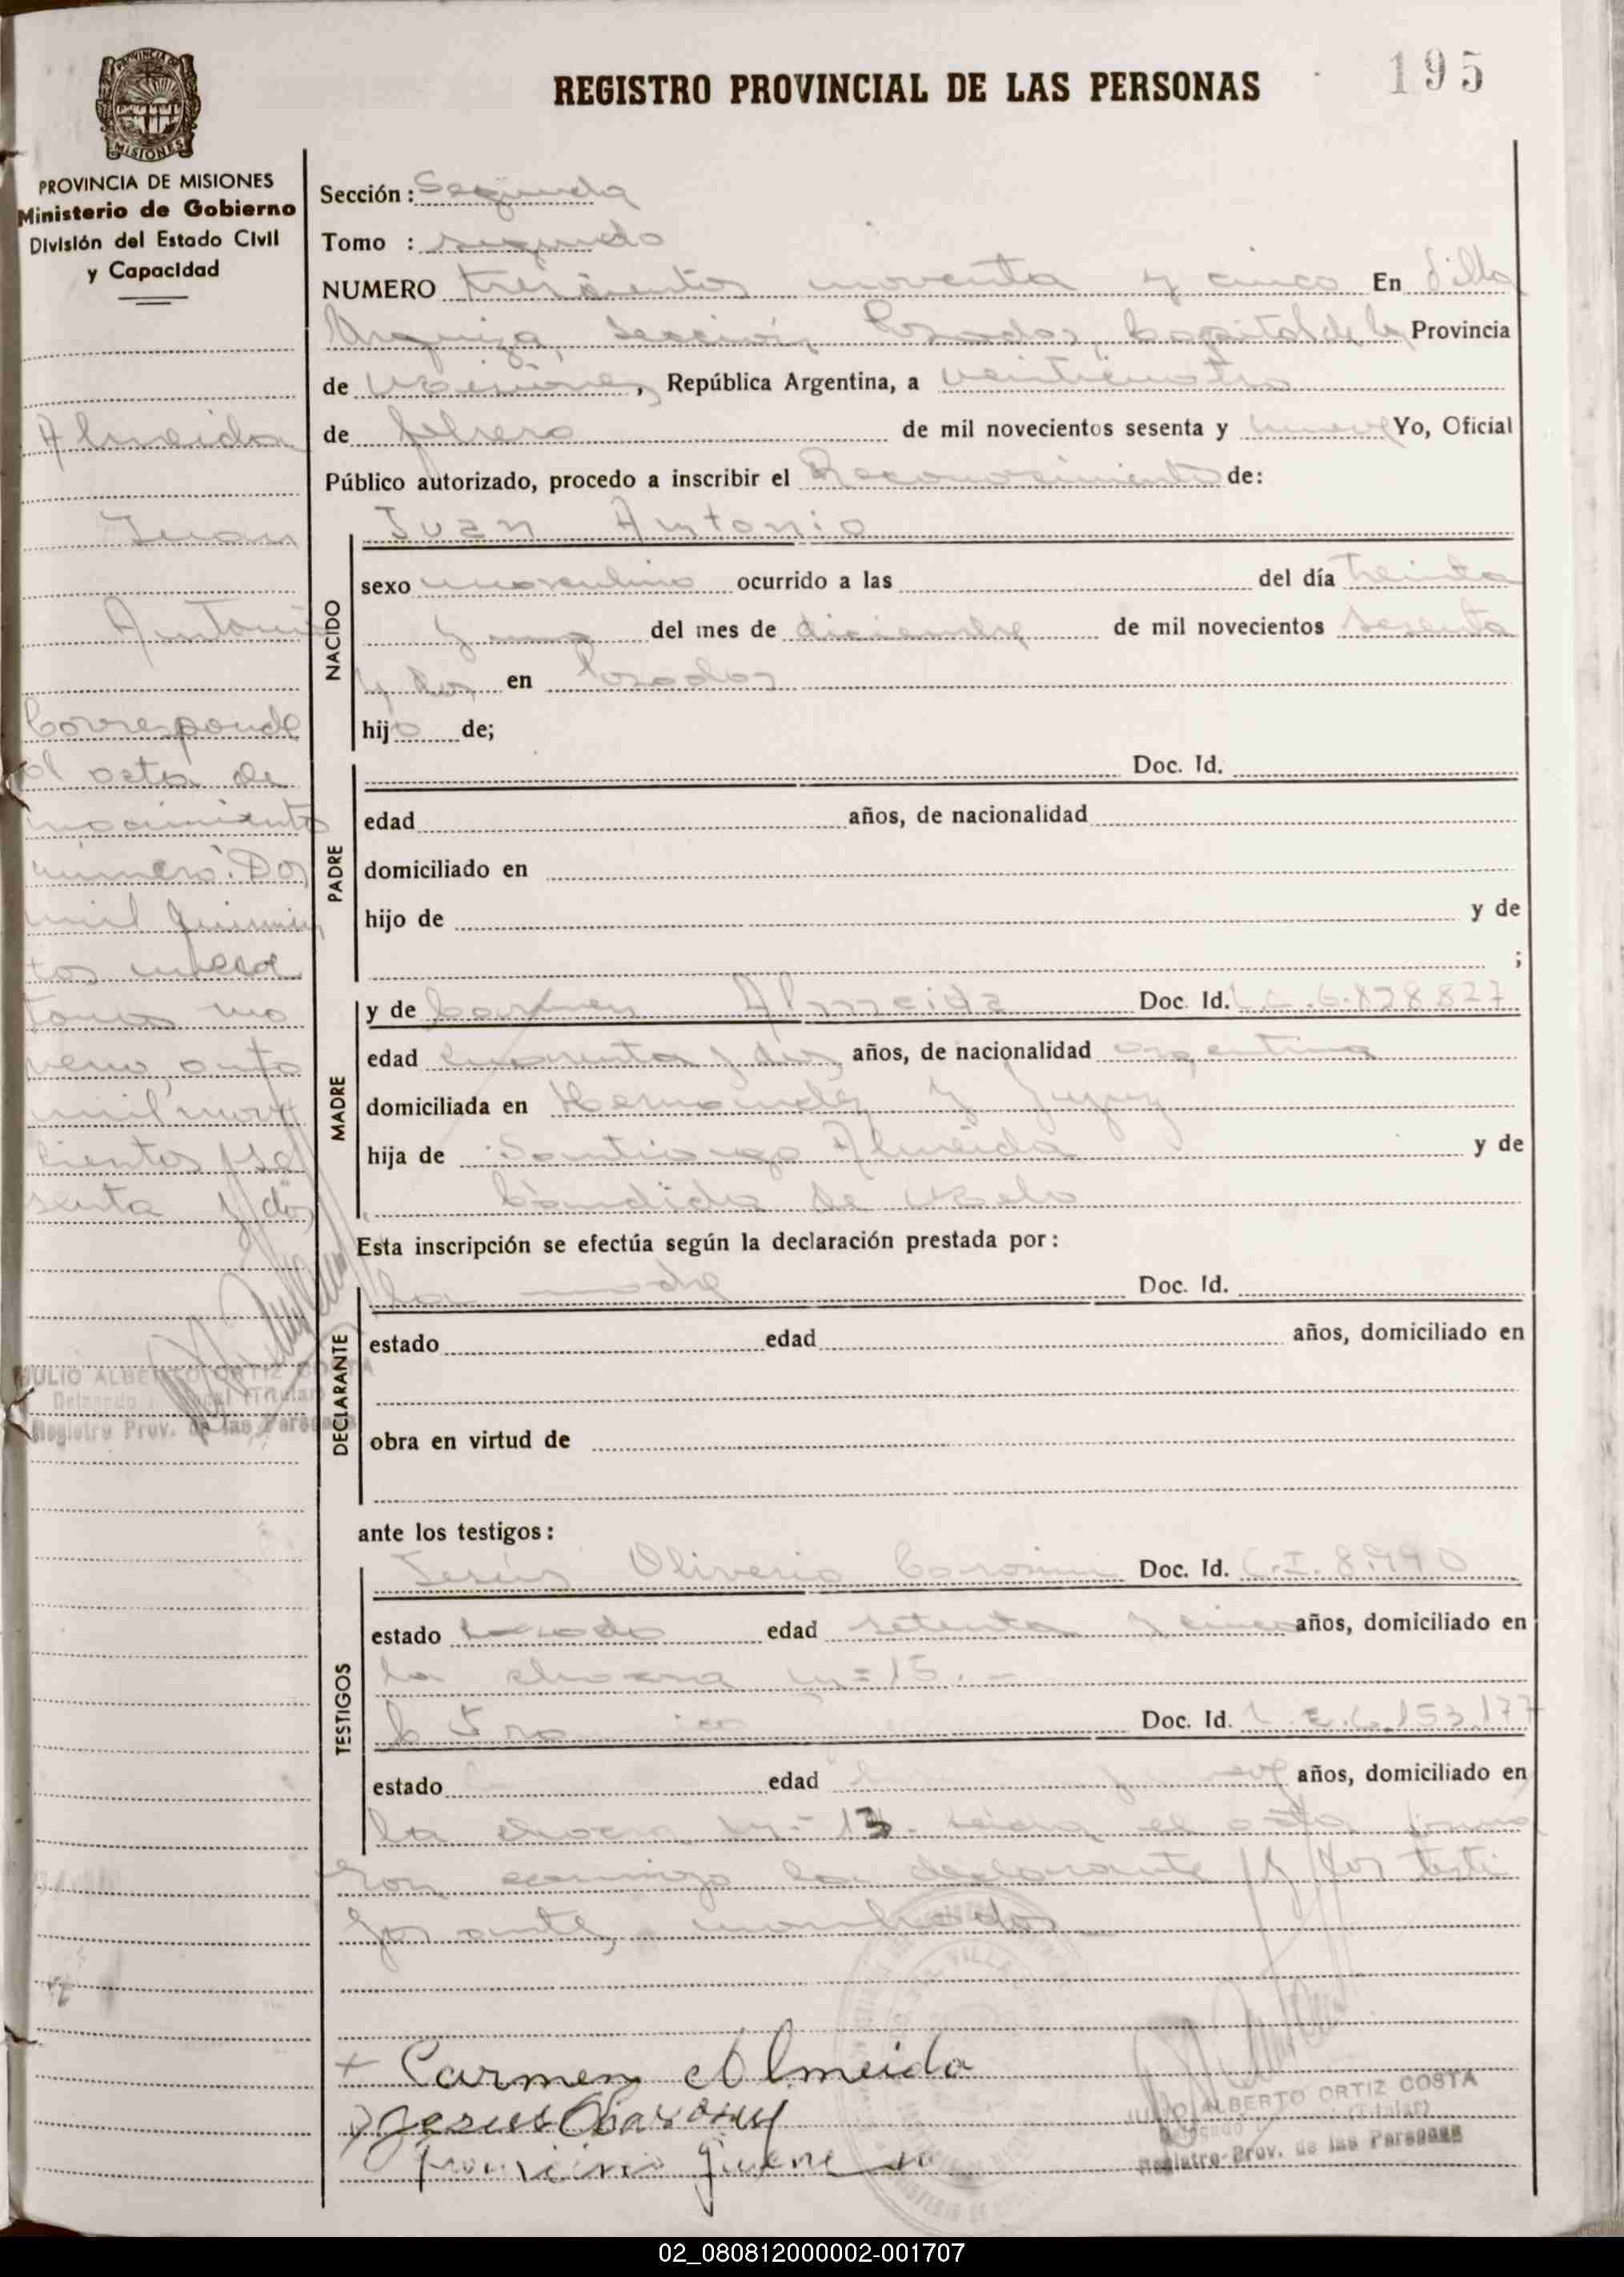 195
REGISTRO PROVINCIAL DE LAS PERSONAS
MISIONES
PROVINCIA DE MISIONES
Ministerio de Gobierno
División del Estado Civil
y Capacidad
Almeida
Juan
Antonio
Corresponde
al acta de
nacimiento
número: Dos
mil quinien
tos
no
mil nove
cientos se
senta y dos
JULIO ALBERTO ORTIZ COSTA
Delegado (Titular)
Registro Prov. de las Personas
Sección: Segunda
Tomo : segundo
NUMERO trescientos noventa y cinco En Villa
Urquiza, sección Posadas, Capital de la Provincia
de Misiones, República Argentina, a veinticuatro
de febrero de mil novecientos sesenta y nueve Yo, Oficial
Público autorizado, procedo a inscribir el Reconocimiento de:
NACIDO
Juan Antonio
sexo masculino ocurrido a las del día treinta
y uno del mes de diciembre de mil novecientos sesenta
y dos en Posadas
hijo de;
PADRE
Doc. Id.
edad años, de nacionalidad
domiciliado en
hijo de y de
;
MADRE
y de Carmen Almeida Doc. Id. L.C. 6.828.827
edad cuarenta y dos años, de nacionalidad argentina
domiciliada en Hernández y Jujuy
hija de Santiago Almeida y de
Cándida de Melo
Esta inscripción se efectúa según la declaración prestada por:
DECLARANTE
la madre Doc. Id.
estado edad años, domiciliado en
obra en virtud de
ante los testigos:
TESTIGOS
Jesús Oliverio Doc. Id. C.I.
estado casado edad setenta y cinco años, domiciliado en
la chacra nº 15.-
Doc. Id. L.E. 6.153.177
estado edad años, domiciliado en
la chacra nº 13. Leída el acta firma
ron conmigo la declarante y los testi
gos ante, nombrados
Carmen Almeida
Jesus
JULIO ALBERTO ORTIZ COSTA
Delegado (Titular)
Registro Prov. de las Personas
02_080812000002-001707